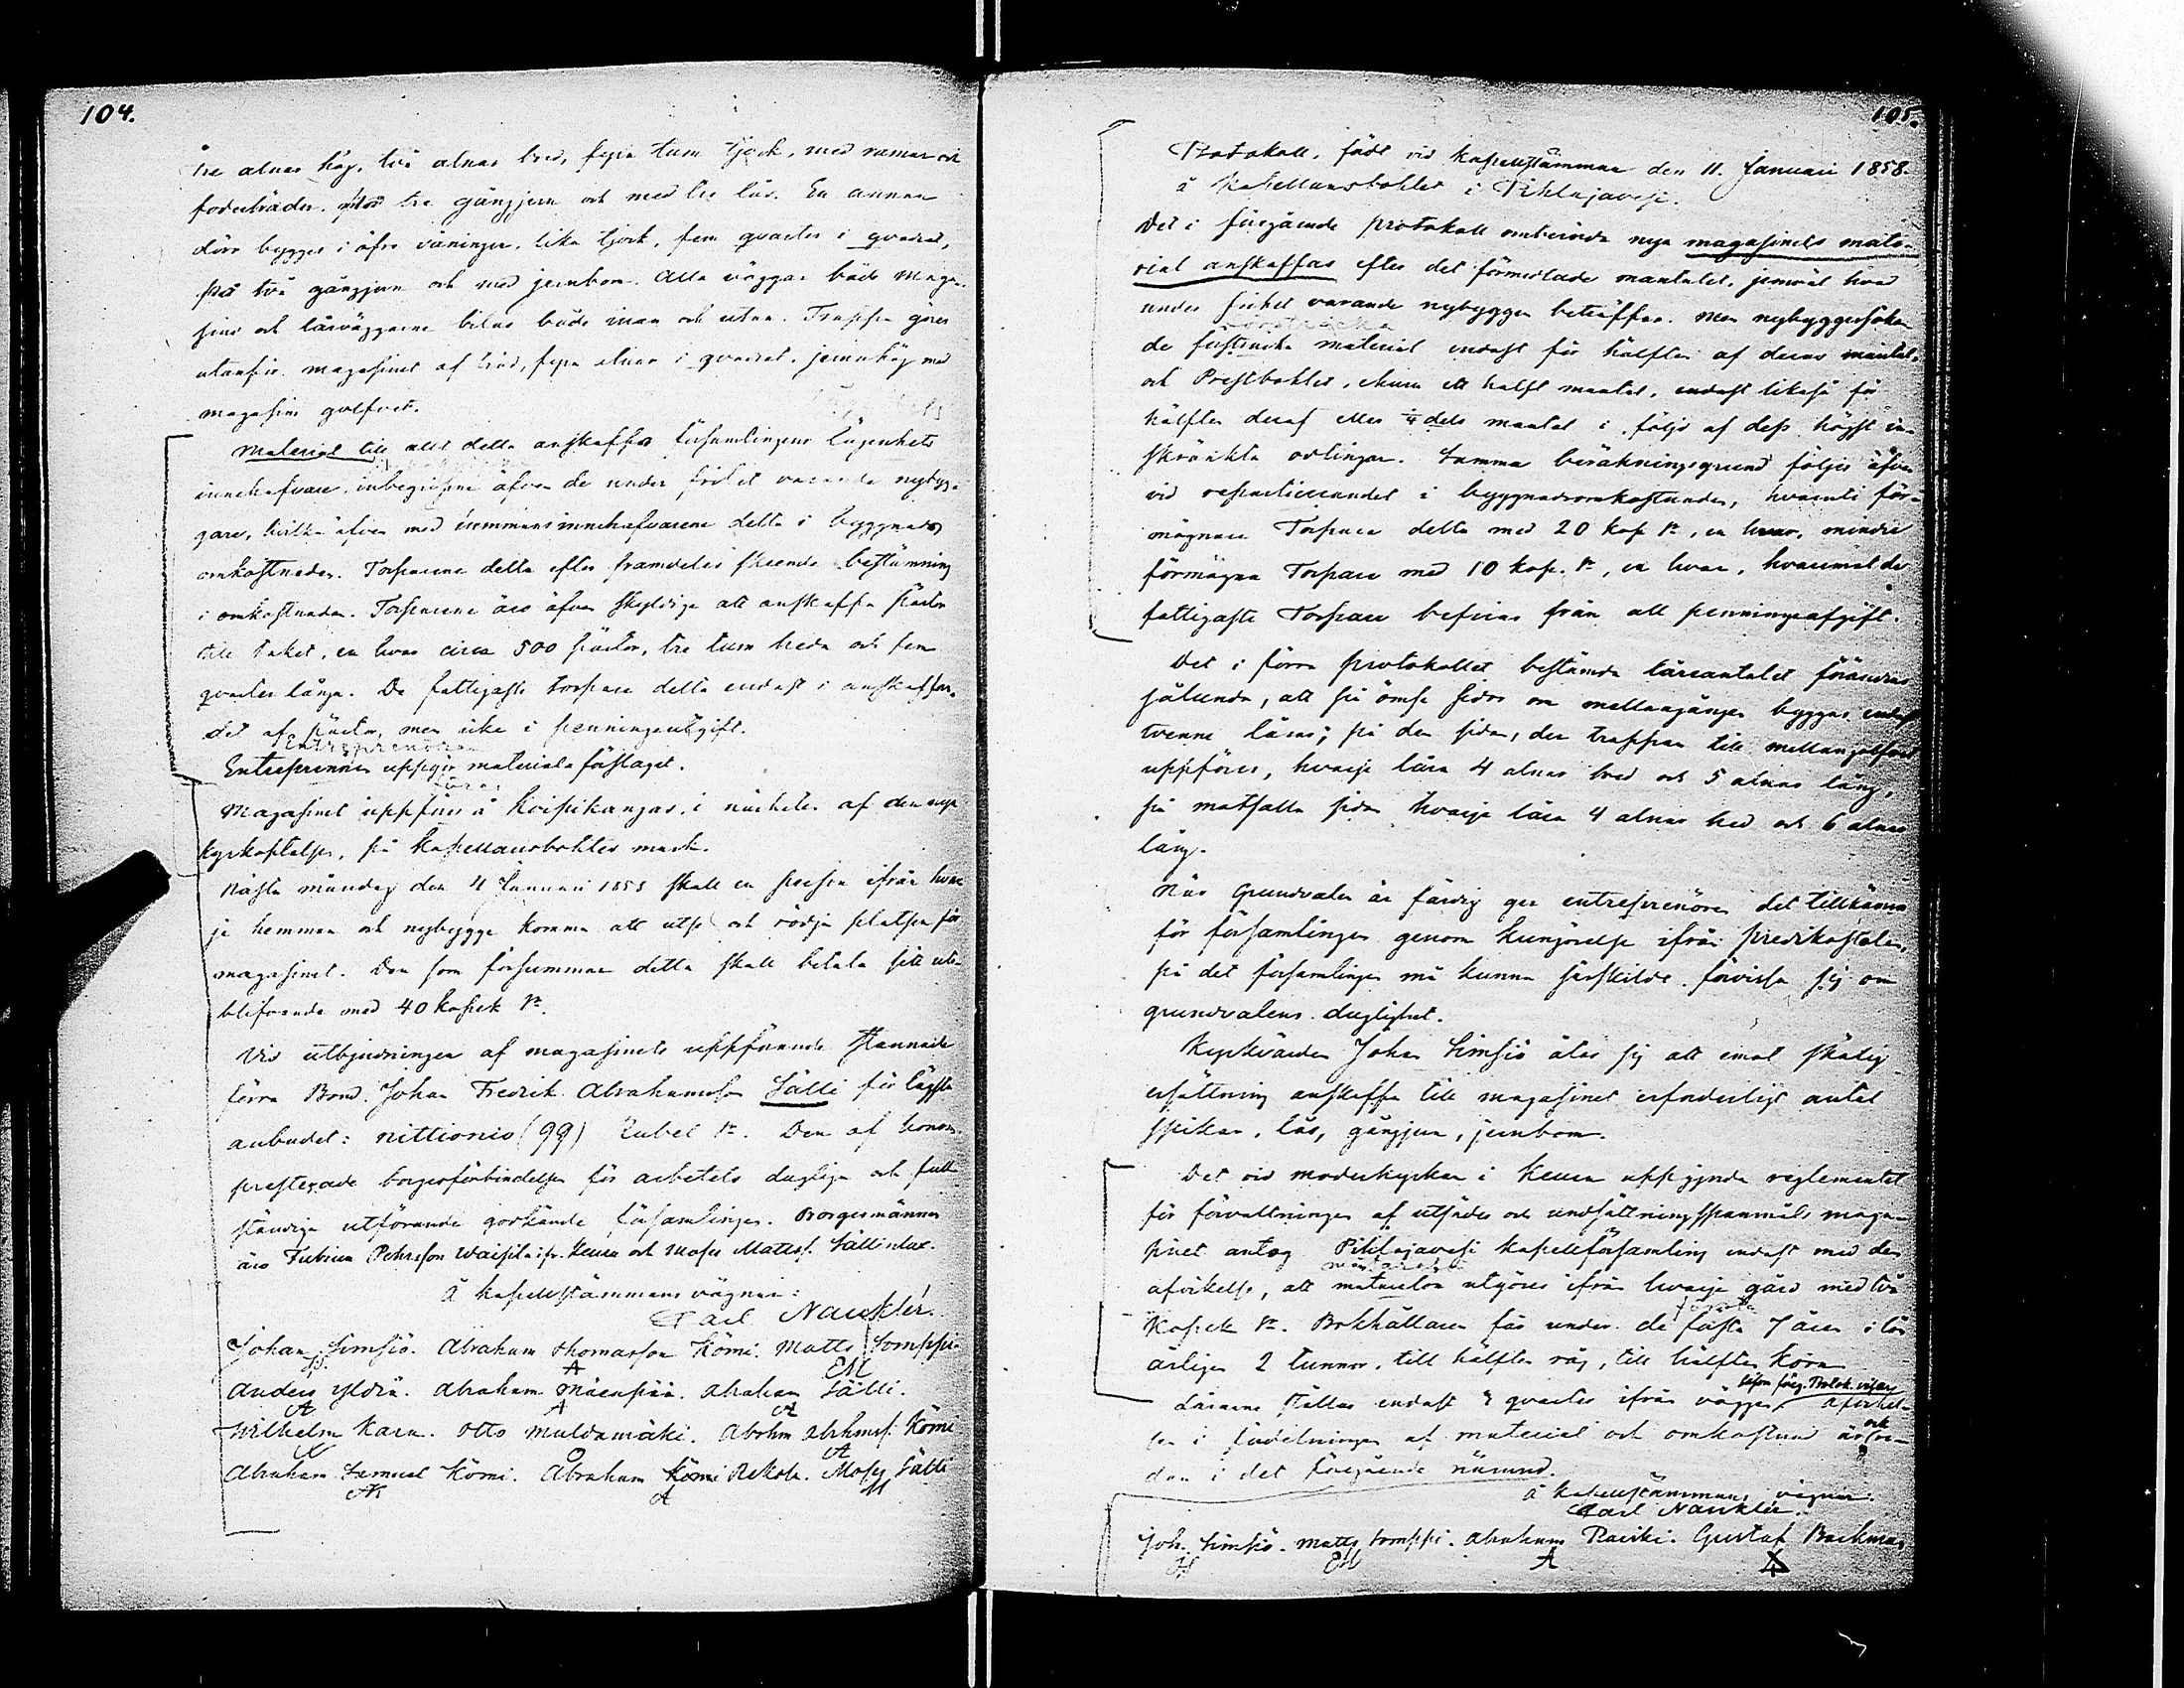 104.
tre alnar hög, två alnar bred, fyra tum tjock, med ramar och
foderbräder, på tre gångjern och med lås. En annan
dörr bygges i öfre våningen, lika tjock, fem qvarter i qvadrat,
på två gångjern och med jernbom. Alla väggar både maga-
sins och lårväggarne bilas både inan och utan. Trappa göres
utanför magasinet af träd, fyra alnar i qvadrat, jemnhög med
magasins golfvet.
Material till allt detta anskaffa församlingens lägenhets
innehafvare, inbegripne äfven de under frihet varande nybyg-
gare, hvilka äfven med hemmansinnehafvarene delta i byggnads
omkostnaden. Torparene delta efter framdeles skeende bestämning
i omkostnaden. Torparene äro äfven skyldige att anskaffa pärtor
till taket, en hvar circa 500 pärtor, tre tum breda och fem
qvarter långa. De fattigaste torpare delta endast i anskaffan-
det af pärtor, men icke i penningeutgift.
Entreprenören
Entreprenören uppgör materialaförslaget.
Magasinet uppföres å Koipikangas, i närheten af den nya
kyrkoplatsen, på kapellansbohlets mark.
Nästa måndag den 4 Januari 1858 skall en person ifrån hvar-
je hemman och nybygge komma att utse och rödja platsen för
magasinet. Den som försummar detta skall betala sitt ute-
blifvande med 40 kopek Sr.
Vid utbjudningen af magasinets uppförande stannade
förra Bond. Johan Fredrik Abrahamsson Sälli för lägsta
anbudet: nittionio (99) Rubel Sr. Den af honom
presterade borgesförbindelsen för arbetets dugliga och full-
ständiga utförande godkände församlingen. Borgesmännen
äro Fabian Pehrsson Waisila ifr. Keuru och Moses Mattss. Sällinlax.
Å kapellstämmans vägnar:
Carl Nauklér.
Johan Simsiö. Abraham Thomasson Kömi. Matts Somppi
A EM
Anders Yldrä. Abraham Mäenpää. Abraham Sälli.
A A A
Wilhelm Kara. Otto Muldamäki. Abrhm Abrhmss. Kömi
O A
Abraham Samuel Kömi. Abraham Kömi Rekola. Moses Sälli
AK A M
105.
Protokoll, fördt vid kapellstämman den 11. Januari 1858.
å Kapellansbohlet i Pihlajavesi.
Det i föregående protokoll omtalda nya magasinets mate-
rial anskaffas efter det förmedlade mantalet, jemväl hvad
under frihet varande nybyggen beträffar. Men nybyggessökan-
försträcka
de försträcka material endast för hälften af deras mantal,
och Prestbohlet, ehuru ett halft mantal, endast likaså för
hälften deraf eller 1/4 dels mantal i följd af dess högst in-
skränkta odlingar. Samma beräkningsgrund följes äfven
vid repartierandet i byggnadsomkostnaden, hvaruti för-
mögnare Torpare delta med 20 kop Sr, en hvar, mindre
förmögna Torpare med 10 kop. Sr, en hvar, hvaremot de
fattigaste Torpare befrias från all penningeafgift.
Det i förra protokollet bestämda lårantalet förändras
sålunda, att på ömse sidor om mellangången byggas endast
tvenne lårar; på den sidan, der trappan till mellangolfvet
uppföres, hvarje låra 4 alnar bred och 5 alnar lång,
på motsatta sidan hvarje låra 4 alnar bred och 6 alnar
lång.
När grundvalen är färdig ger entreprenören det tillkänna
för församlingen genom kungörelse ifrån predikostolen,
på det församlingen må kunna särskilde förvissa sig om
grundvalens duglighet.
Kyrkvärden Johan Simsiö åtar sig att emot skälig
ersättning anskaffa till magasinet erforderligt antal
spikar, lås, gångjern, jernbom.
Det vid moderkyrkan i Keuru uppgjorda reglementet
för förvaltningen af utsädes och undsättningsspanmåls maga-
sinet antog Pihlajavesi kapellförsamling endast med den
afvikelse, att mätarelön utgöres ifrån hvarje gård med två
Kopek Sr. Bokhållaren får under de första 7 åren i lön
första
årligen 2 tunnor, till hälften råg, till hälften korn.
Lårarne ställas endast 3 qvarter ifrån väggen, såsom föreg. Protok. visar, afvikel-
sen i fördelningen af material och omkostnad är och re-
dan i det föregående nämnd.
Å kapellstämmans vägnar:
Carl Nauklér.
Joh. Simsiö. Matts Somppi. Abraham Raiski. Gustaf Backman
JS EM A